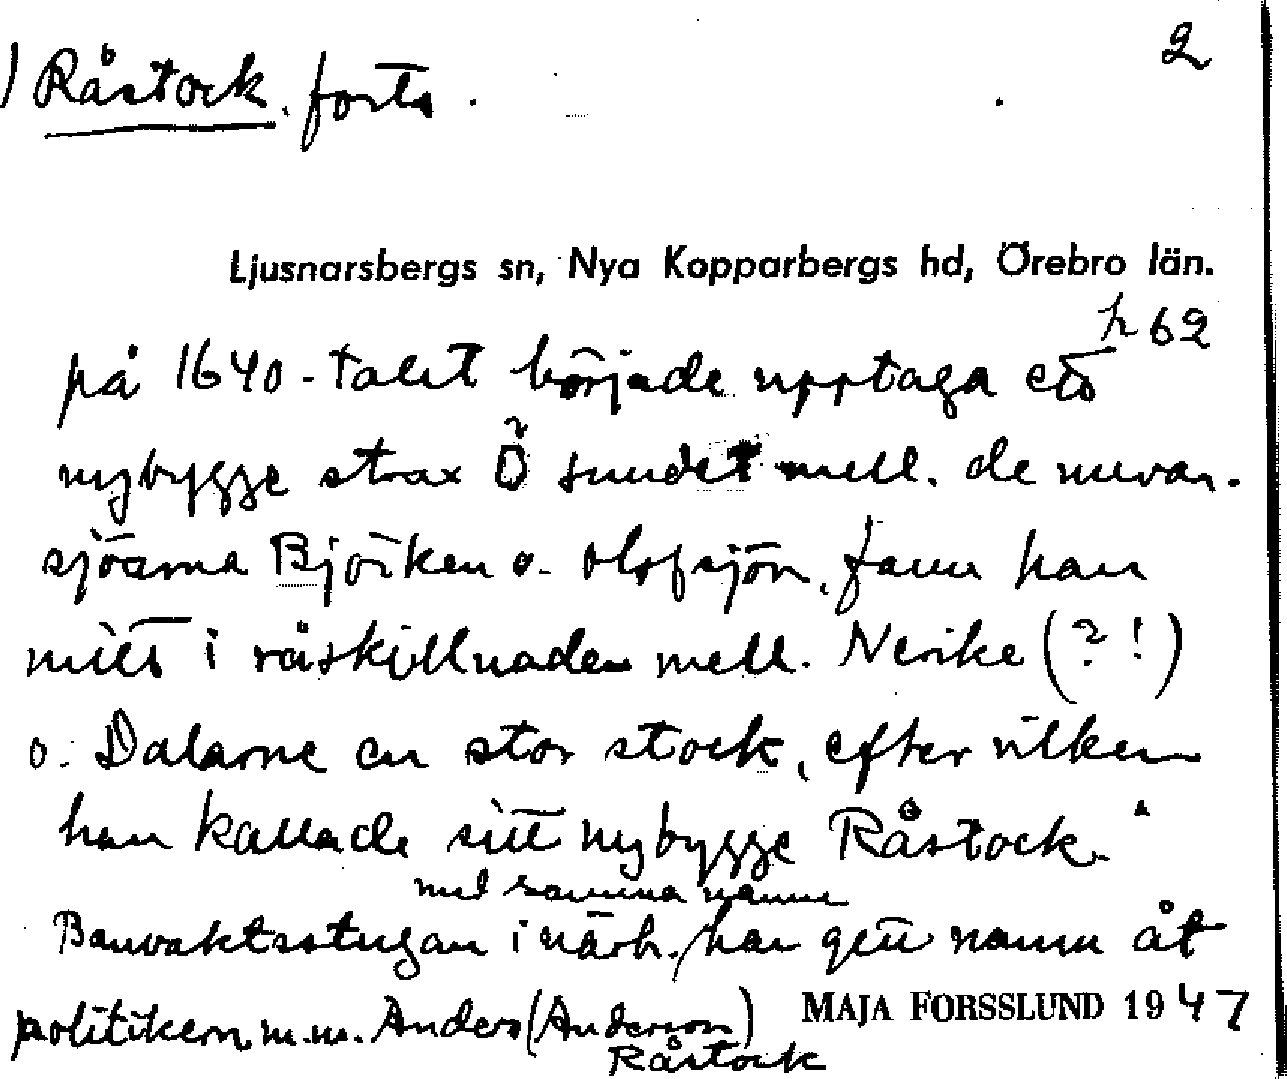 2
) Råstock. forts.
Ljusnarsbergs sn, Nya Kopparbergs hd, Örebro län.
h 62
på 1640-talet började upptaga ett
nybygge strax Ö sundet mell. de nuvar.
sjöarna Björken o. Olofsjön, fann han
mitt i råskillnaden mell. Nerike (?!)
o. Dalarne en stor stock, efter vilken
han kallade sitt nybygge Råstock."
med samma namn
Banvaktsstugan i närh. har gett namn åt
politikern m.m. Anders (Anderson)
Råstock
MAJA FORSSLUND 1947